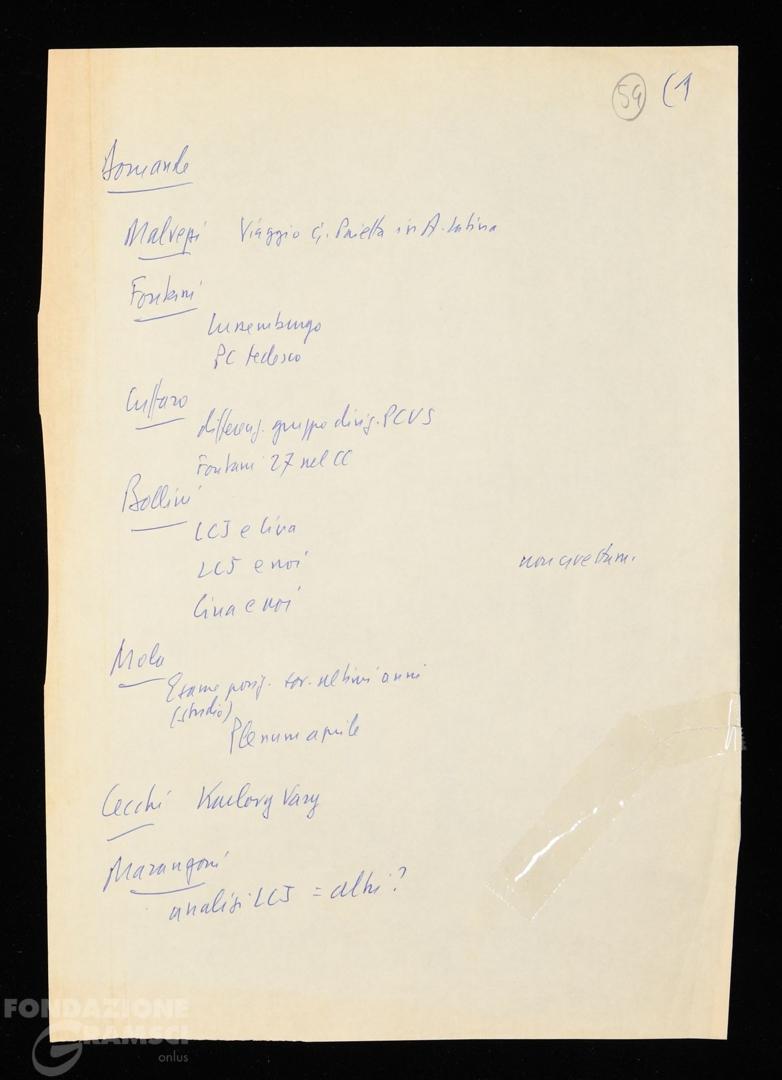 59 (1
Domande
Malvezzi Viaggio G. Pajetta in A. Latina
Fontani
Lussemburgo
PC tedesco
Cuffaro
differenz. gruppo dirig. PCUS
Fontani 27 nel CC
Bollini
LCJ e Cina
LCJ e noi
Cina e noi
Mola
Esame posiz. sov. ultimi anni
(studio)
Plenum aprile
Cecchi Karlovy Vary
Marangoni
analisi LCJ = altri?
FONDAZIONE
GRAMSCI
onlus